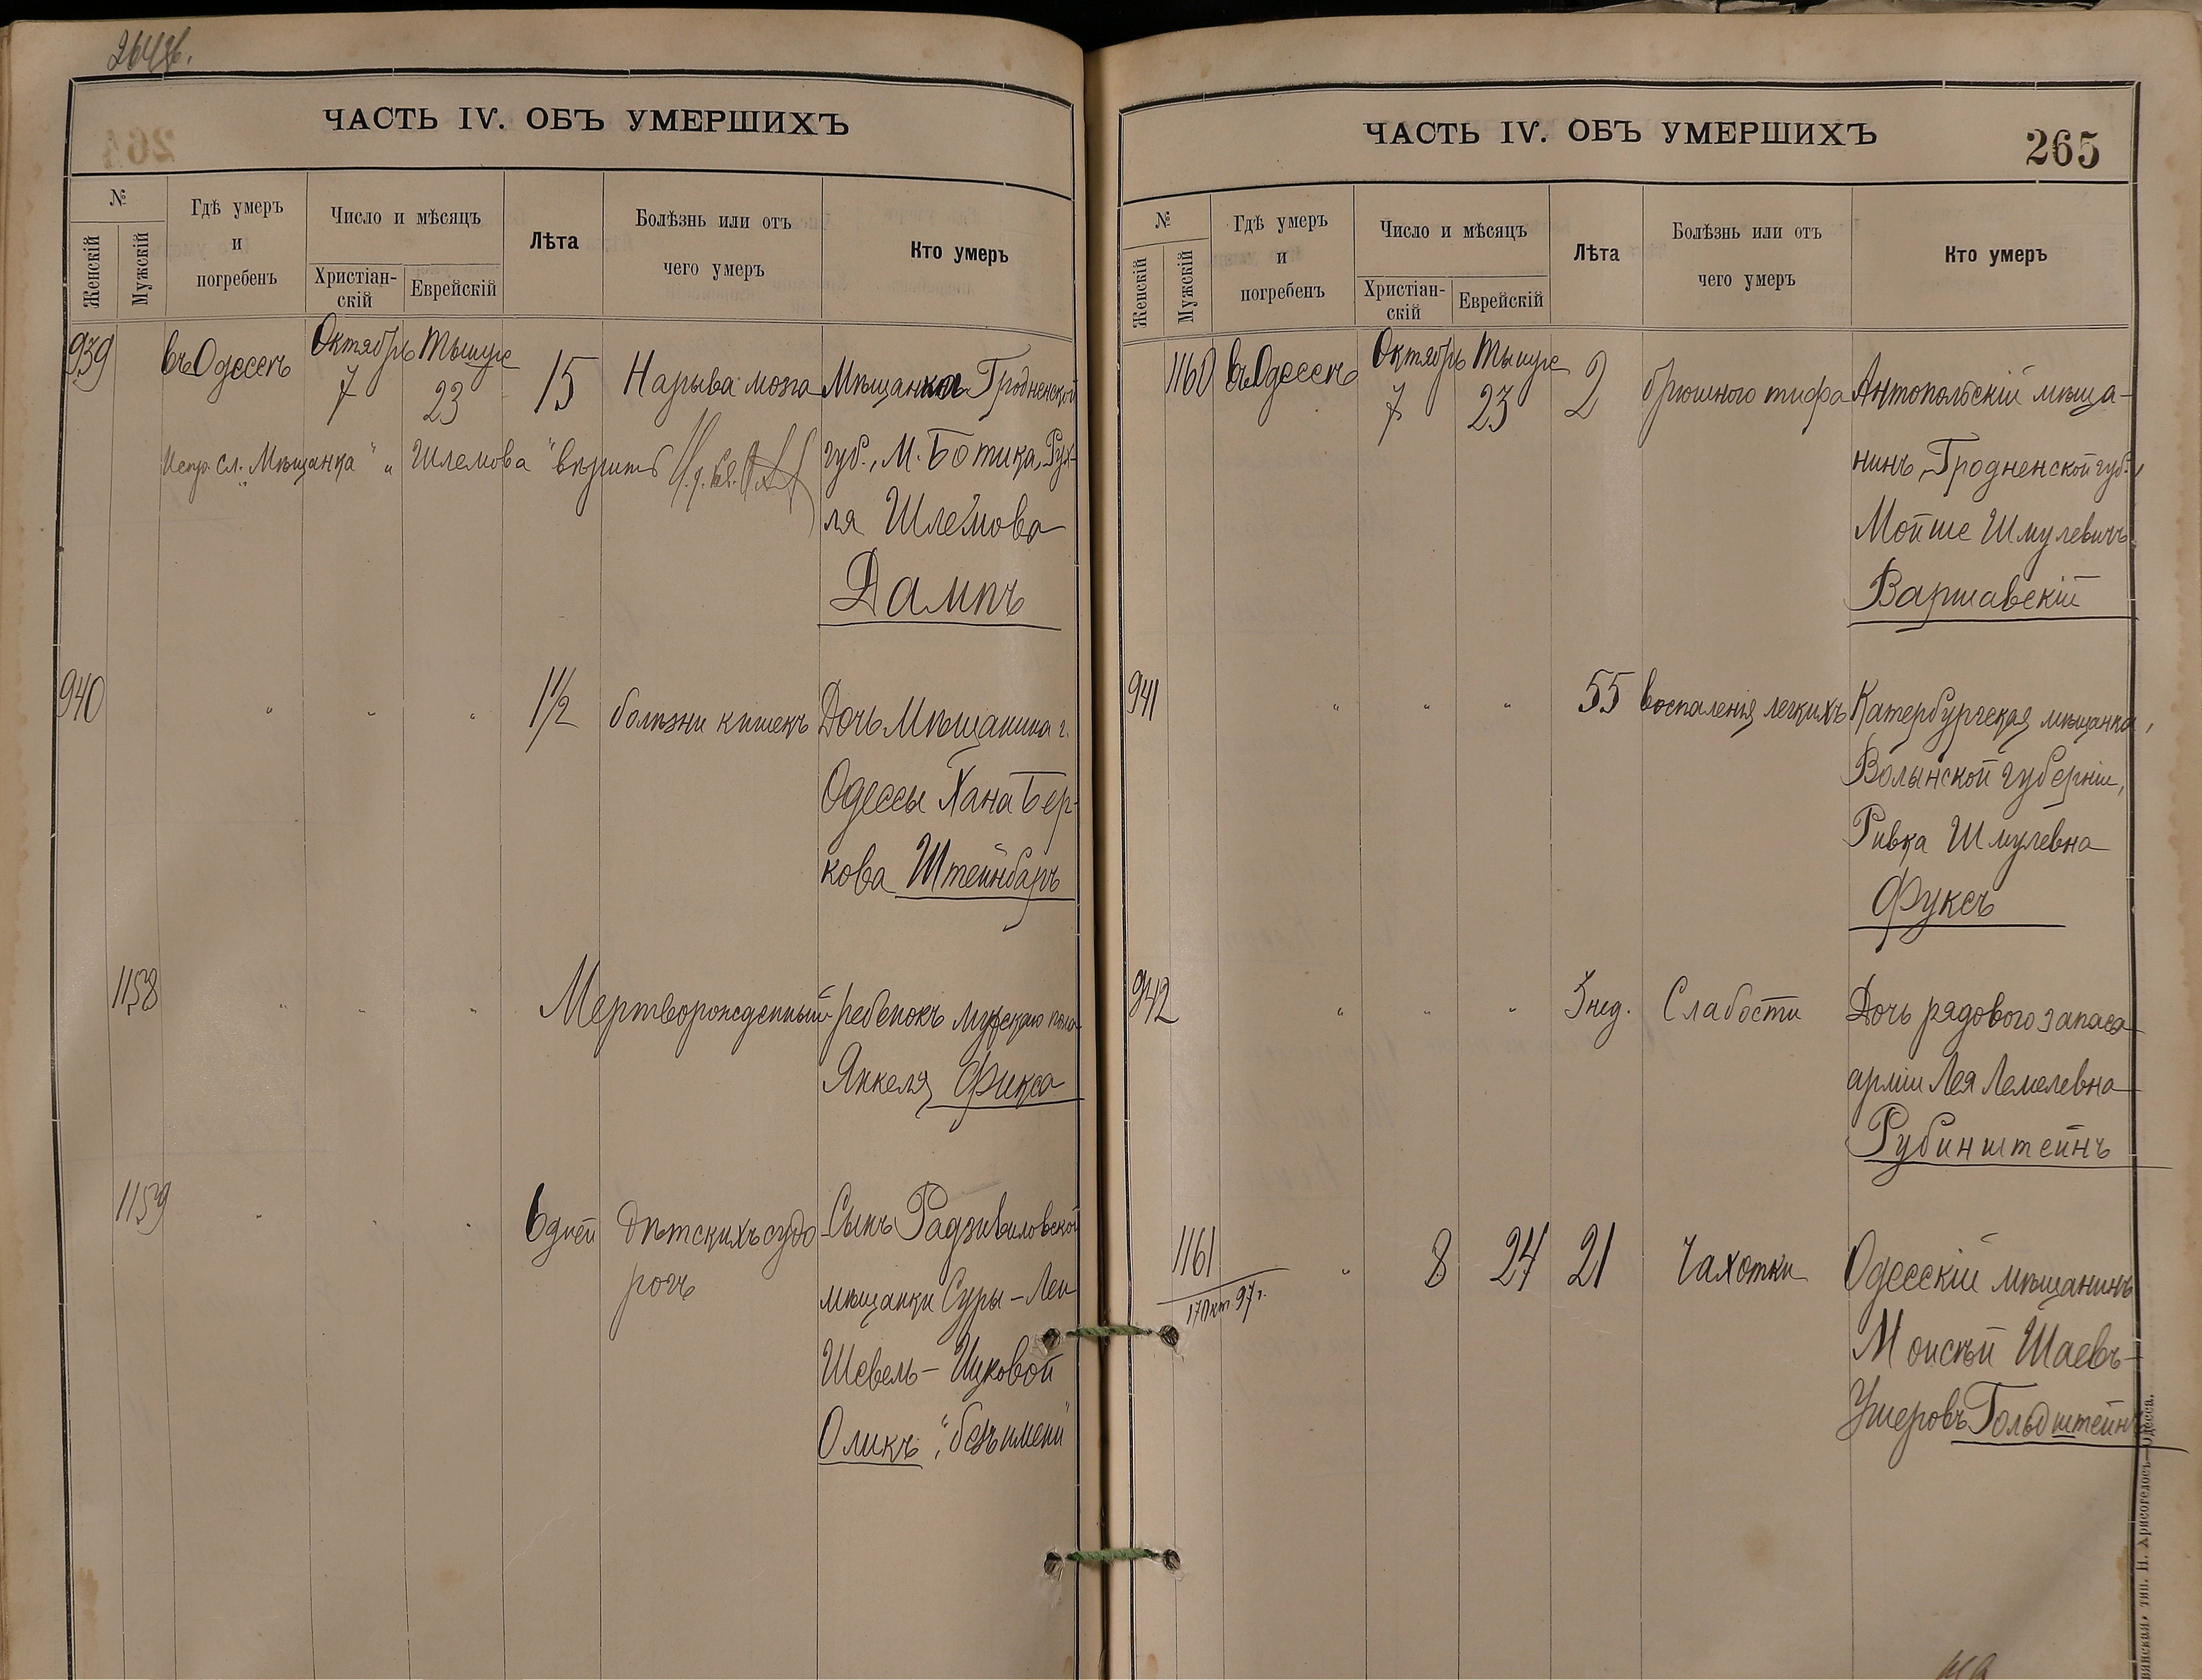 264об.
ЧАСТЬ IV. ОБЪ УМЕРШИХЪ
№
Женскій
Мужскій
Гдѣ умеръ
и
погребенъ
Число и мѣсяцъ
Христіан-
скій
Еврейскій
Лѣта
Болѣзнь или отъ
чего умеръ
Кто умеръ
939 въ Одессѣ Октябрь 7 Тышре 23 15 Нарыва мозга Мѣщанка Гродненской
Испр. сл. „Мѣщанка" „Шлемова" вѣрить губ., М. Ботика, Рух-
ля Шлемова
Дампъ
940 " " " 1½ болѣзни кишекъ Дочь Мѣщанина г.
Одессы Хана Бер-
кова Штейнбаръ
1158 " " " Мертворожденный ребенокъ мужскаго пола
Янкеля Фикса
1159 " " " 6 дней Дѣтскихъ судо Сынъ Радзивиловской
рогъ мѣщанки Суры-Леи
Шевель-Ицковой
Оликъ, „безъ имени"
ЧАСТЬ IV. ОБЪ УМЕРШИХЪ
265
№
Женскій
Мужскій
Гдѣ умеръ
и
погребенъ
Число и мѣсяцъ
Христіан-
скій
Еврейскій
Лѣта
Болѣзнь или отъ
чего умеръ
Кто умеръ
1160 въ Одессѣ Октябрь 7 Тышре 23 2 брюшного тифа Антопольскій мѣща-
нинъ, Гродненской губ.,
Мойше Шмулевичъ
Варшавскій
941 " " " 55 воспаленія легкихъ Катербургская мѣщанка,
Волынской губерніи,
Ривка Шмулевна
Фуксъ
942 " " " 3 нед. Слабости Дочь рядового запаса
арміи Лея Лемелевна
Рубинштейнъ
1161 " 8 24 21 Чахотки Одесскій мѣщанинъ
17 Окт. 97 г.
Моисѣй Шаевъ-
Ушеровъ Гольдштейнъ
тип. Н. Хрисогелосъ—Одесса.